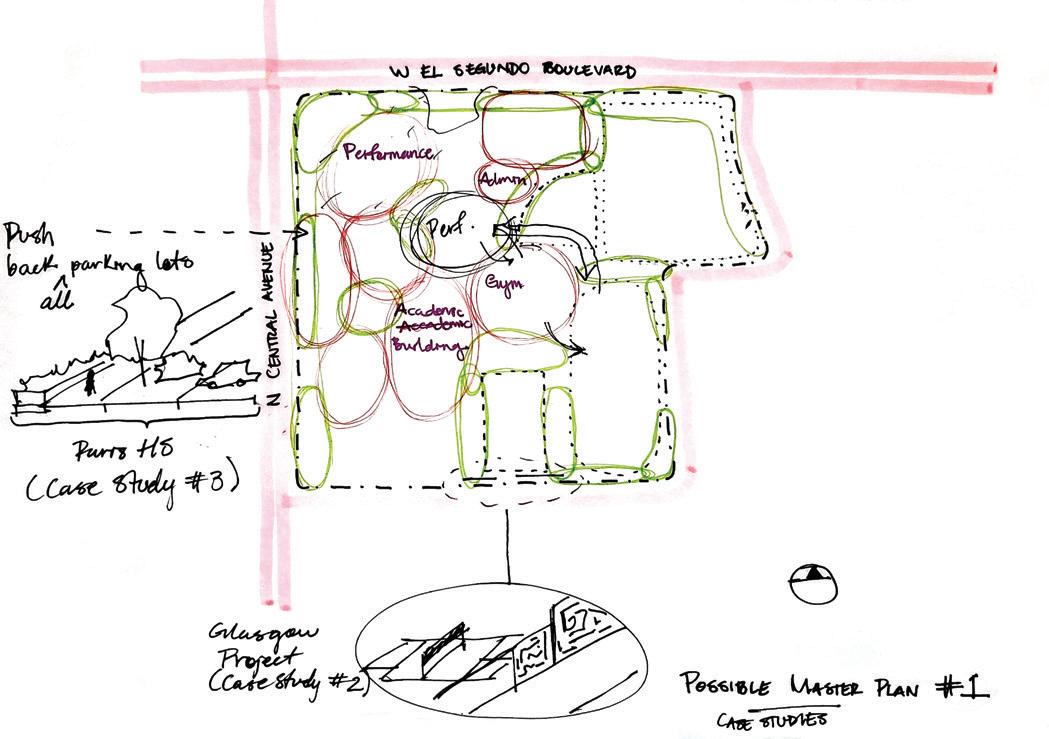 W EL SEGUNDO BOULEVARD
Performance
Admin
Perf.
Push
back parking lots
all
N CENTRAL AVENUE
Gym
Academic
Accademic
Building
HS
(Case Study #3)
Glasgow
Project
(Case Study #2)
POSSIBLE MASTER PLAN #1
CASE STUDIES